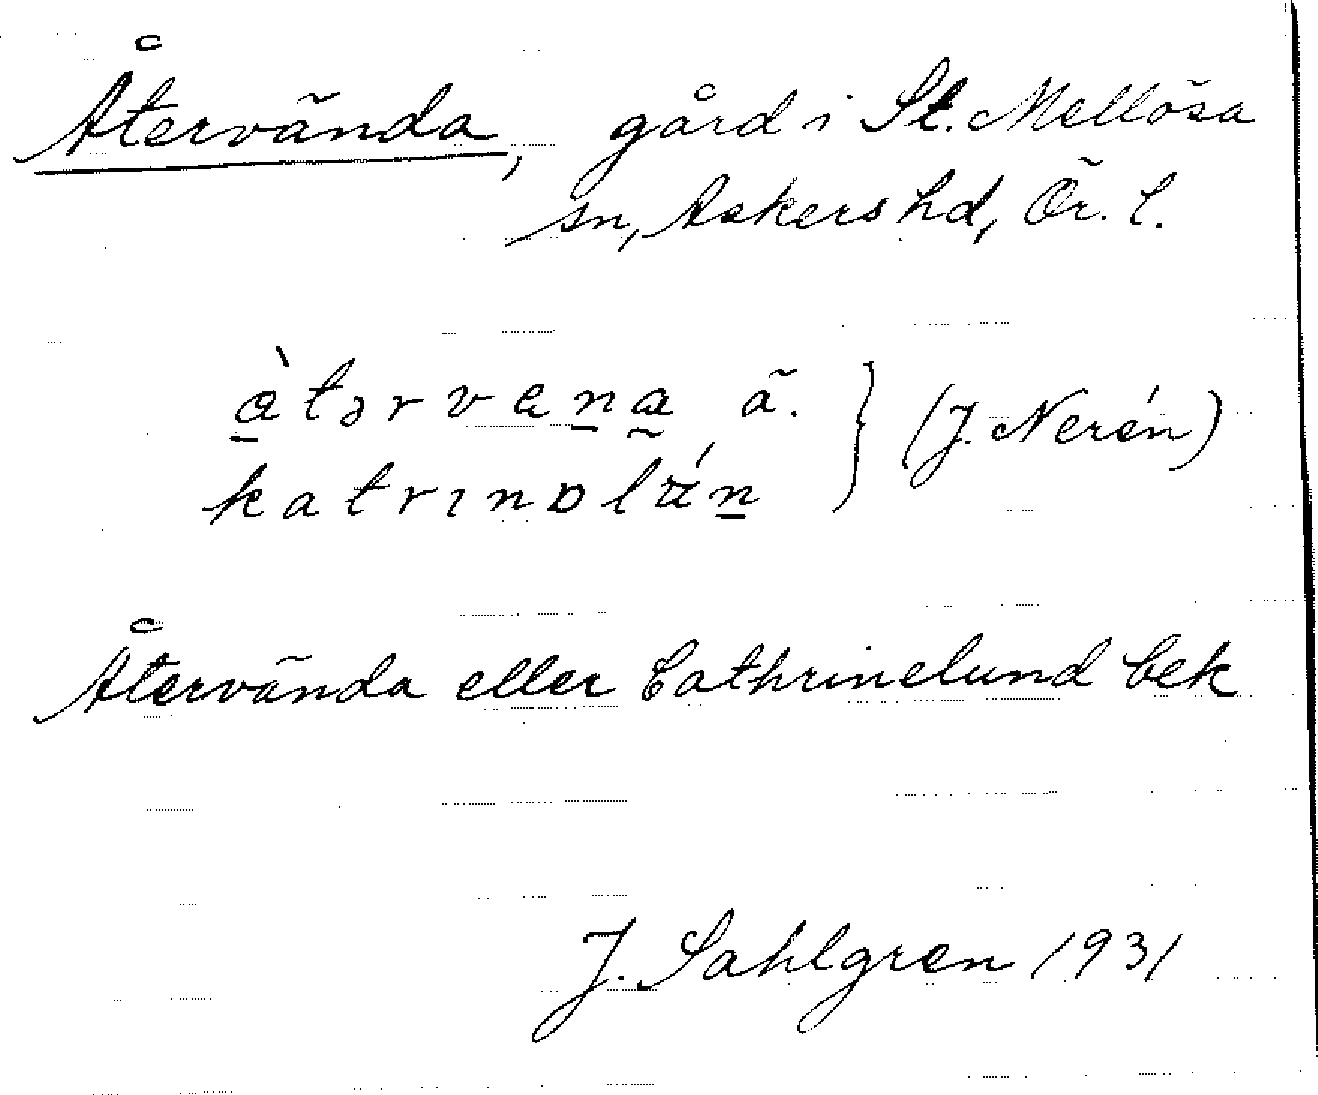 Återvända, gård i St. Mellösa
sn, Askers hd, Ör. l.
å̱̀tərvana ä.
katrinɒlún
(J. Nerén)
Återvända eller Cathrinelund bek
J. Sahlgren 1931